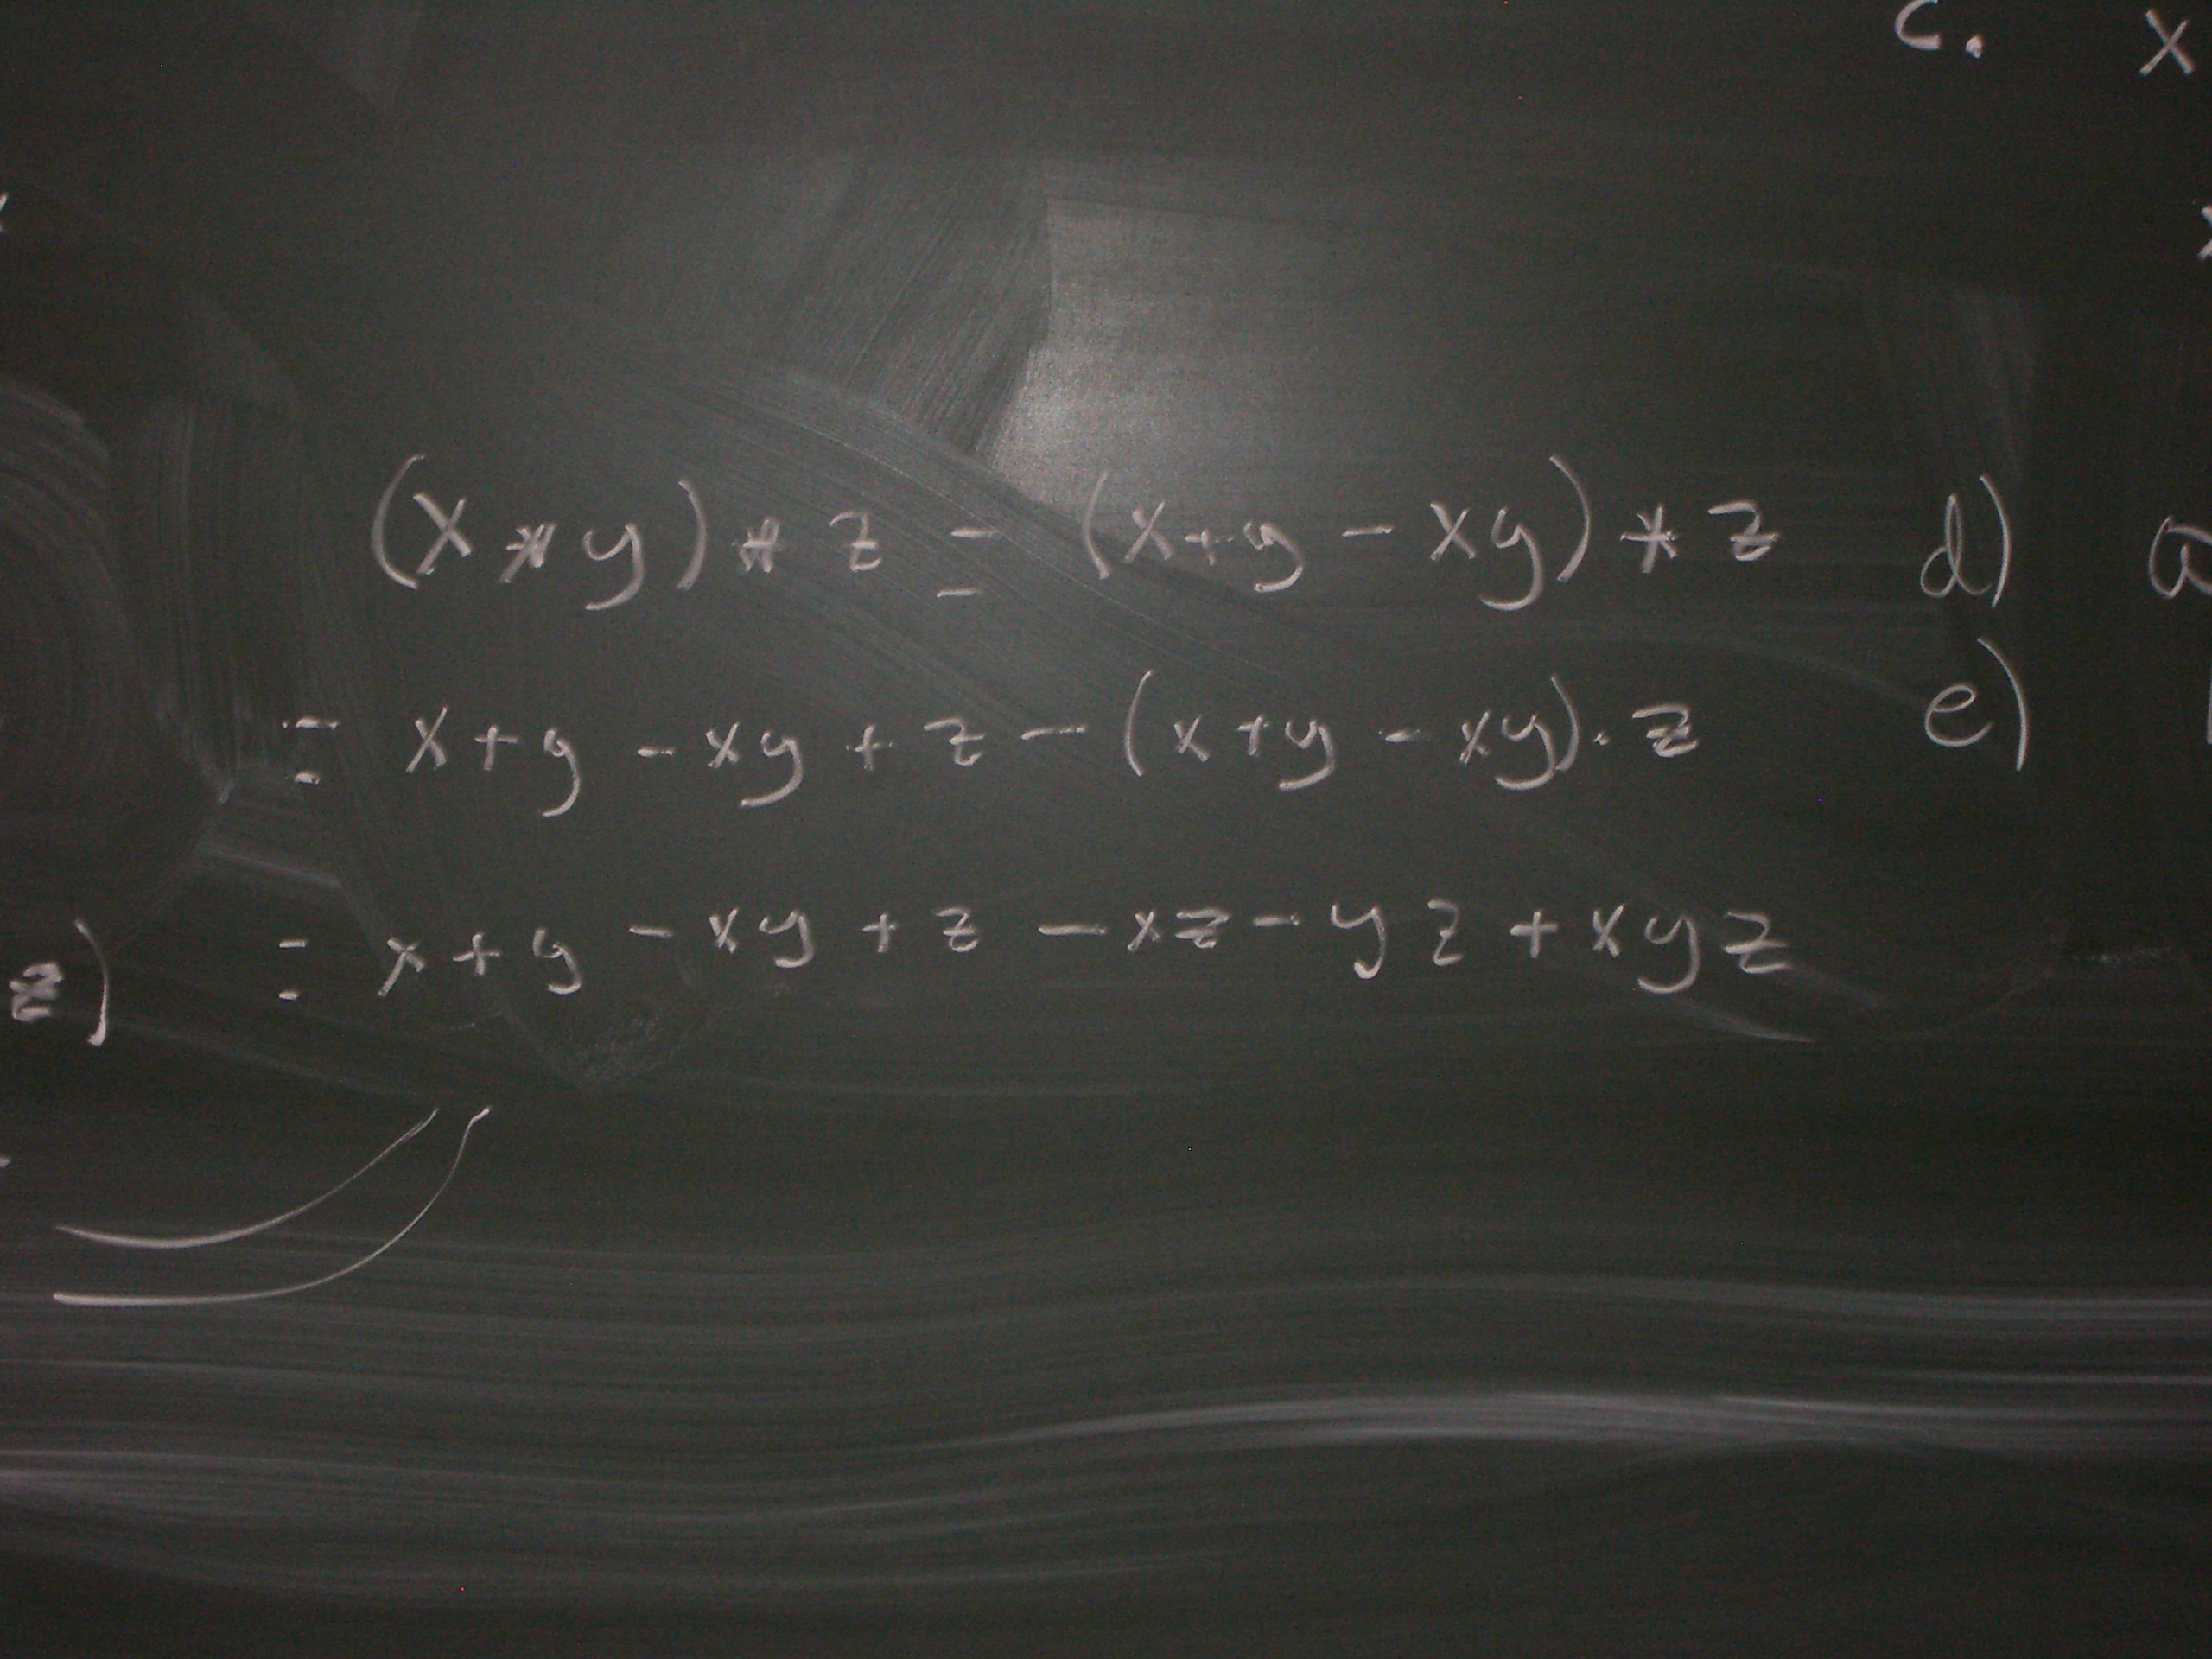 c. x
(x * y) * z = (x+y - xy) * z
d)
= x+y - xy + z - (x+y - xy). z
e)
z)
= x+y - xy + z - xz - yz + xyz